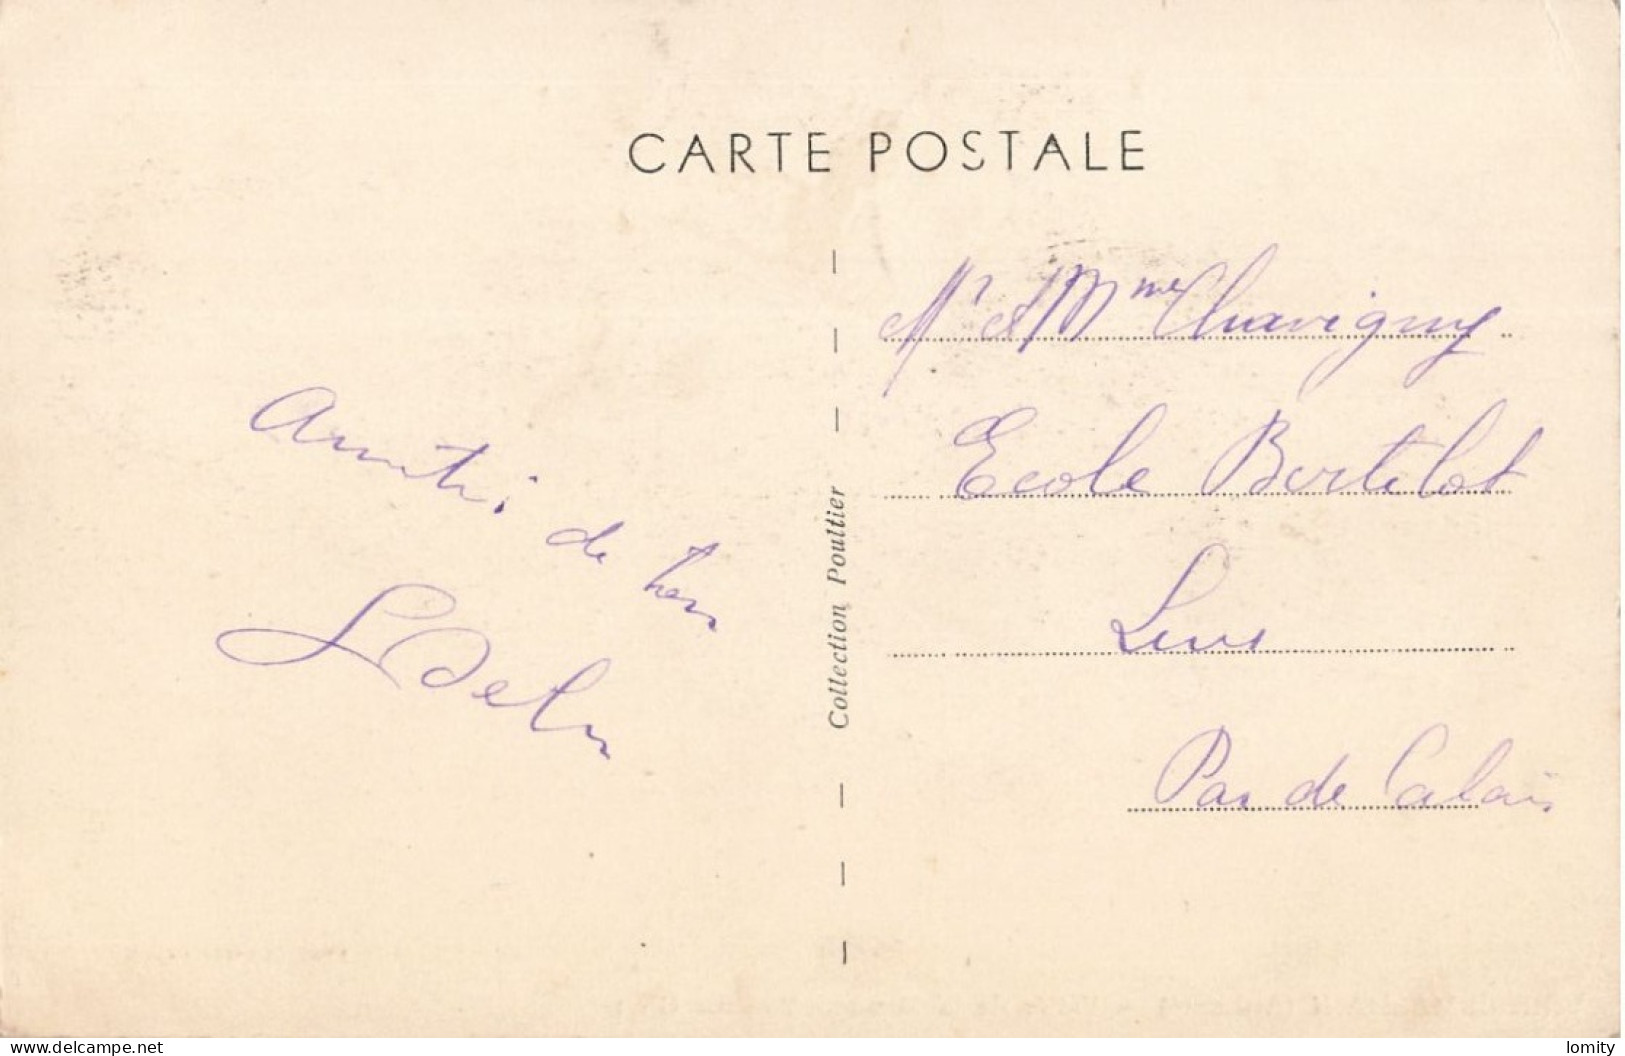 CARTE POSTALE
Amitiés de tous
Collection Poultier
Mr & Mme Chavigny
Ecole Bertelot
Lens
Pas de Calais
delcampe.net
lomity